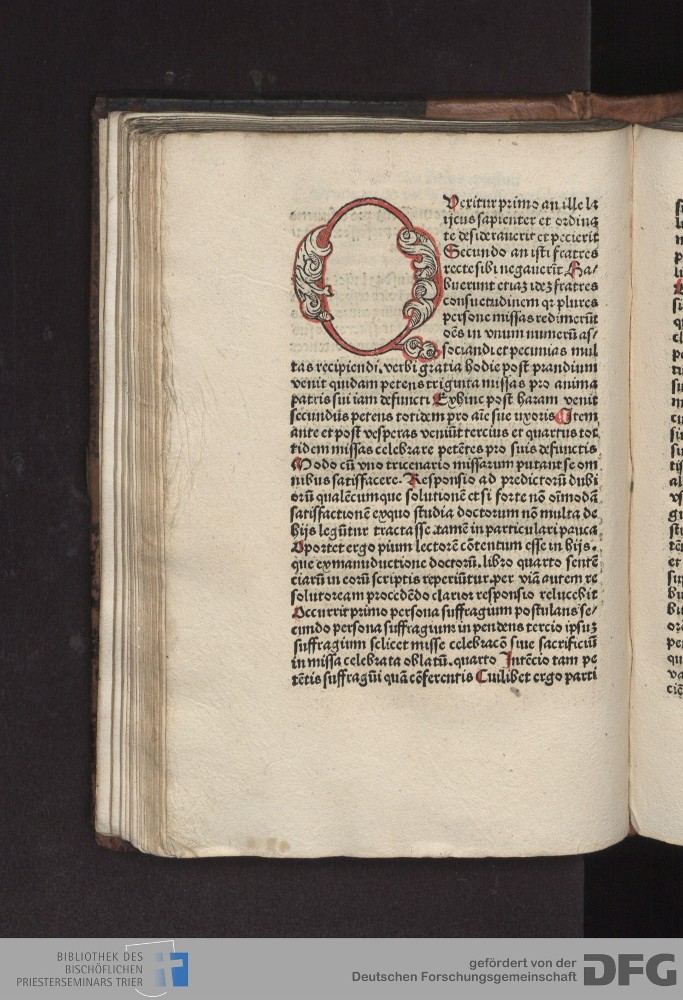 Q Veritur primo an ille la
ijcus sapienter et ordina
te desiderauerit et pecierit
Secundo an isti fratres
recte sibi negauerīt Ha/
buerunt etiaʒ ideʒ fratres
consuetudinem qꝛ plures
persone missas redimerūt
oēs in vnum numerū as/
sociandi et pecunias mul
tas recipiendi. verbi gratia hodie post prandium
venit quidam petens triginta missas pro anima
patris sui iam defuncti Exhinc post haram venit
secundus petens totidem pro aīe sue uxoris Item
ante et post vesperas veniūt tercius et quartus tot
tidem missas celebrare petētes pro suis defunctis
Modo cū vno tricenario missarum putant se om
nibus satisfacere. Responsio ad predictorū dubi
orū qualēcumque solutionē et si forte nō oīmodā
satisfactionē ex quo studia doctorum nō multa de
hijs legūtur tractasse .tamē in particulari pauca
Oportet ergo pium lectorē cōtentum esse in hijs.
que ex manuductione doctorū. libro quarto sentē
ciarū in eorū scriptis reperiūtur. per viā autem re
solutoream procedēdo clarior responsio relucebit
Occurrit primo persona suffragium postulans se/
cundo persona suffragium inpendens tercio ipsuʒ
suffragium scilicet misse celebracō siue sacrificiū
in missa celebrata oblatū. quarto Intēcio tam pe
tētis suffragiū quā cōferentis Cuilibet ergo parti
BIBLIOTHEK DES
BISCHÖFLICHEN
PRIESTERSEMINARS TRIER
gefördert von der
Deutschen Forschungsgemeinschaft
DFG